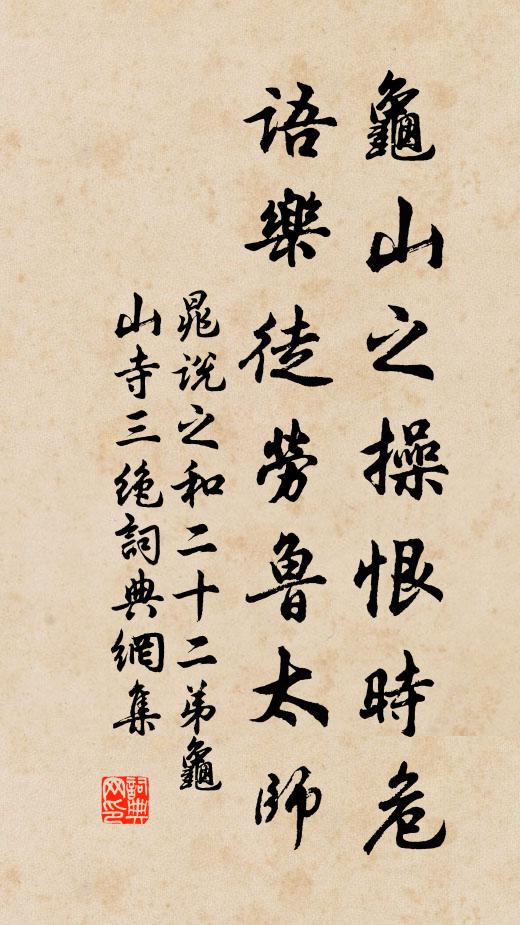 龜山之操恨時危
語樂徒勞魯太師
晁说之和二十二弟龜
山寺三绝詞典網集
詞典
网印